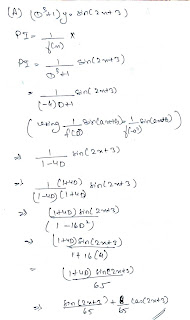 (A) (D³+1)y = sin(2x+3)
PI = 1/f(D) X
PI = 1/(D³+1) sin(2x+3)
= 1/((-4)D+1) sin(2x+3)
(using 1/f(D²) sin(ax+b) = 1/f(-a²) sin(ax+b))
⇒ 1/(1-4D) sin(2x+3)
⇒ 1(1+4D)/((1-4D)(1+4D)) sin(2x+3)
⇒ (1+4D) sin(2x+3)/(1-16D²)
⇒ (1+4D) sin(2x+3)/(1+16(4))
= (1+4D) sin(2x+3)/65
⇒ sin(2x+3)/65 + 8/65 cos(2x+3)